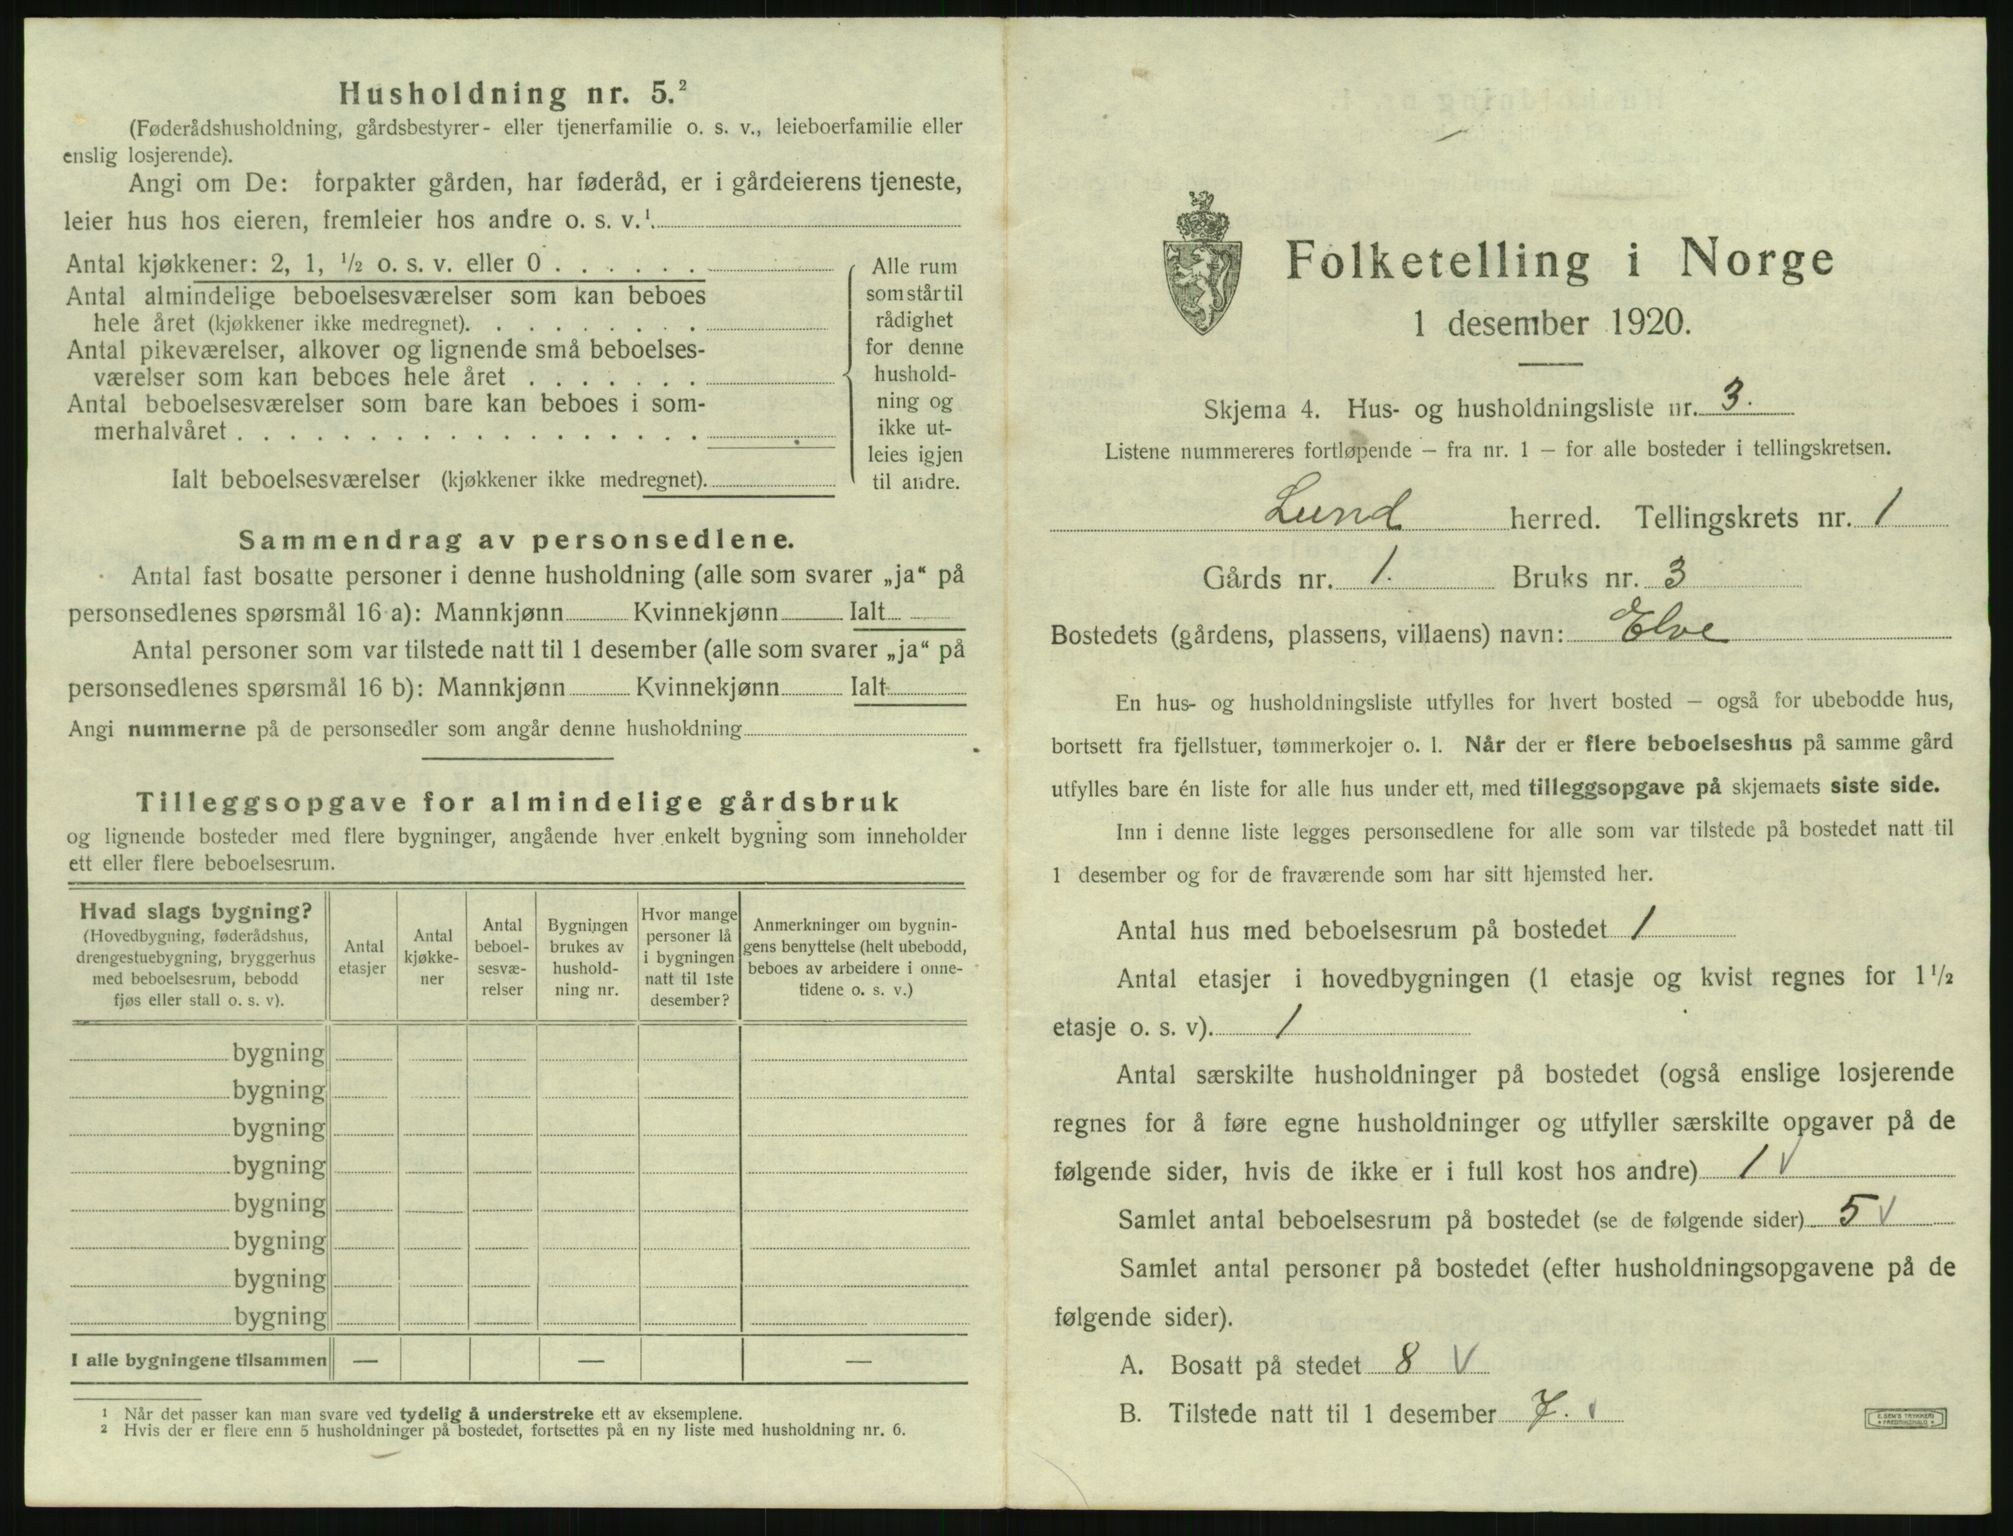 Husholdning nr. 5.²
(Føderådshusholdning, gårdsbestyrer- eller tjenerfamilie o. s. v., leieboerfamilie eller
enslig losjerende).
Angi om De: forpakter gården, har føderåd, er i gårdeierens tjeneste,
leier hus hos eieren, fremleier hos andre o. s. v.¹.
Antal kjøkkener: 2, 1, ½ o. s. v. eller 0 . . . . . .
Antal almindelige beboelsesværelser som kan beboes
hele året (kjøkkener ikke medregnet). . . . . . . . .
Antal pikeværelser, alkover og lignende små beboelses-
værelser som kan beboes hele året . . . . . . .
Antal beboelsesværelser som bare kan beboes i som-
merhalvåret . . . . . . . . . . . . . . . . . .
Ialt beboelsesværelser (kjøkkener ikke medregnet).
Alle rum
som står til
rådighet
for denne
hushold-
ning og
ikke ut-
leies igjen
til andre.
Sammendrag av personsedlene.
Antal fast bosatte personer i denne husholdning (alle som svarer „ja“ på
personsedlenes spørsmål 16 a): Mannkjønn Kvinnekjønn Ialt
Antal personer som var tilstede natt til 1 desember (alle som svarer „ja“ på
personsedlenes spørsmål 16 b): Mannkjønn Kvinnekjønn Ialt
Angi nummerne på de personsedler som angår denne husholdning
Tilleggsopgave for almindelige gårdsbruk
og lignende bosteder med flere bygninger, angående hver enkelt bygning som inneholder
ett eller flere beboelsesrum.
Hvad slags bygning?
(Hovedbygning, føderådshus,
drengestuebygning, bryggerhus
med beboelsesrum, bebodd
fjøs eller stall o. s. v).
Antal
etasjer
Antal
kjøkke-
ner
Antal
beboel-
sesvæ-
relser
Bygningen
brukes av
hushold-
ning nr.
Hvor mange
personer lå
i bygningen
natt til 1ste
desember?
Anmerkninger om bygnin-
gens benyttelse (helt ubebodd,
beboes av arbeidere i onne-
tidene o. s. v.)
bygning
bygning
bygning
bygning
bygning
bygning
bygning
bygning
I alle bygningene tilsammen — — —
¹ Når det passer kan man svare ved tydelig å understreke ett av eksemplene.
² Hvis der er flere enn 5 husholdninger på bostedet, fortsettes på en ny liste med husholdning nr. 6.
Folketelling i Norge
1 desember 1920.
Skjema 4. Hus- og husholdningsliste nr. 3.
Listene nummereres fortløpende — fra nr. 1 — for alle bosteder i tellingskretsen.
Lund herred. Tellingskrets nr. 1
Gårds nr. 1. Bruks nr. 3
Bostedets (gårdens, plassens, villaens) navn: Elve
En hus- og husholdningsliste utfylles for hvert bosted — også for ubebodde hus,
bortsett fra fjellstuer, tømmerkojer o. l. Når der er flere beboelseshus på samme gård
utfylles bare én liste for alle hus under ett, med tilleggsopgave på skjemaets siste side.
Inn i denne liste legges personsedlene for alle som var tilstede på bostedet natt til
1 desember og for de fraværende som har sitt hjemsted her.
Antal hus med beboelsesrum på bostedet 1
Antal etasjer i hovedbygningen (1 etasje og kvist regnes for 1½
etasje o. s. v). 1
Antal særskilte husholdninger på bostedet (også enslige losjerende
regnes for å føre egne husholdninger og utfyller særskilte opgaver på de
følgende sider, hvis de ikke er i full kost hos andre) 1 V
Samlet antal beboelsesrum på bostedet (se de følgende sider) 5 V
Samlet antal personer på bostedet (efter husholdningsopgavene på de
følgende sider).
A. Bosatt på stedet 8 V
B. Tilstede natt til 1 desember 7. V
E. SEM'S TRYKKERI
FREDRIKSHALD